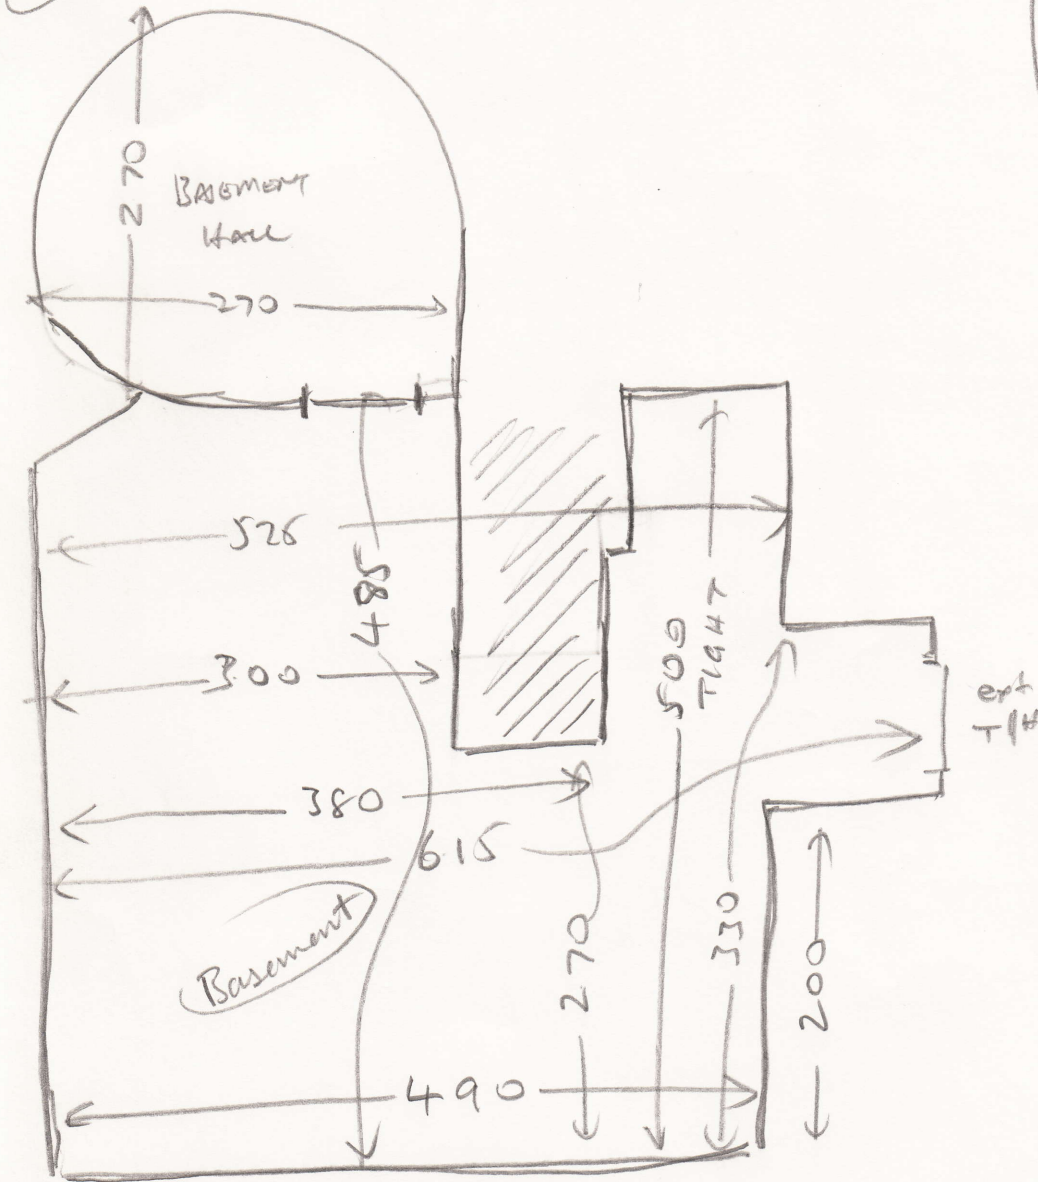 270
BASEMENT
HALL
270
526
485
300
500
TIGHT
ext
T/H
380
615
Basement
270
330
200
490